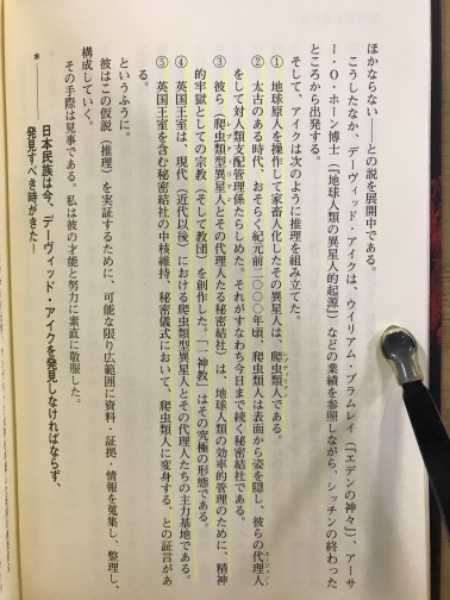 ほかならない――との説を展開中である。
こうしたなか、デーヴィッド・アイクは、ウイリアム・ブラムレイ(『エデンの神々』)、アーサ
ー・O・ホーン博士(『地球人類の異星人的起源』)などの業績を参照しながら、シッチンの終わった
ところから出発する。
そして、アイクは次のように推理を組み立てた。
① 地球原人を操作して家畜人化したその異星人は、爬虫類人である。
② 太古のある時代、おそらく紀元前二〇〇〇年頃、爬虫類人は表面から姿を隠し、彼らの代理人
をして対人類支配管理係たらしめた。それがすなわち今日まで続く秘密結社である。
③ 彼ら(爬虫類型異星人とその代理人たる秘密結社)は、地球人類の効率的管理のために、精神
的牢獄としての宗教(そして教団)を創作した。「一神教」はその究極の形態である。
④ 英国王室は、現代(近代以後)における爬虫類型異星人とその代理人たちの主力基地である。
⑤ 英国王室を含む秘密結社の中核維持、秘密儀式において、爬虫類人に変身する、との証言があ
る。
というふうに。
彼はこの仮説(推理)を実証するために、可能な限り広範囲に資料・証拠・情報を蒐集し、整理し、
構成していく。
その手際は見事である。私は彼の才能と努力に素直に敬服した。
*――日本民族は今、デーヴィッド・アイクを発見しなければならず、
発見すべき時がきた!